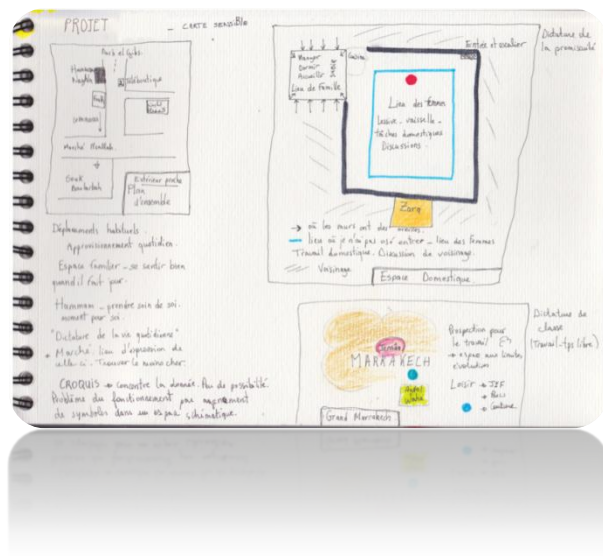 PROJET - CARTE SENSIBLE
Park el Gzb.
Hammam
Marché Mellah.
Souk
Plan
d'ensemble
Déplacements habituels.
Approvisionnement quotidien.
Espace familier - se sentir bien
quand il fait jour.
Hammam - prendre soin de soi.
moment pour soi.
"Dictature de la vie quotidienne"
Marché: lieu d'expression de
celle-ci. Trouver le moins cher.
CROQUIS → concentre la donnée. Pas de possibilité
Problème du fonctionnement par
de symboles dans un espace schématique.
Manger
Dormir
Accueillir
Lieu de Famille
Entrée et escalier
Lieu des femmes
lessive - vaisselle -
tâches domestiques
Discussions.
Zara
→ où les murs ont des oreilles.
lieu où je n'ai pas osé entrer - lieu des femmes
Travail domestique. Discussion de voisinage.
Voisinage
Espace Domestique.
Dictature de
la promiscuité
MARRAKECH
Grand Marrakech
Prospection pour
le travail
Loisir → JJF
→ Parcs
Dictature de
classe
(Travail-tps libre)